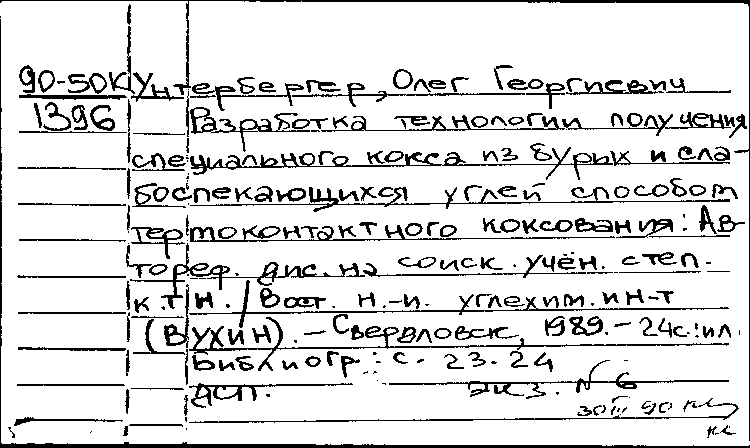 90-50К Унтербергер, Олег Георгиевич
1396 Разработка технологии получения
специального кокса из бурых и сла-
боспекающихся углей способом
термоконтактного коксования: Ав-
тореф. дис. на соиск. учён. степ.
к.т.н. / Вост. н.-и. углехим. ин-т
(ВУХИН). – Свердловск, 1989. – 24с.: ил.
Библиогр.: с. 23-24
ДСП. экз. №6
30III 90